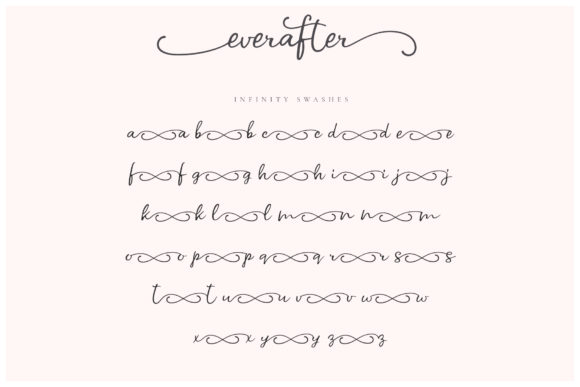 everafter
INFINITY SWASHES
a∞a b∞b c∞c d∞d e∞e
f∞f g∞g h∞h i∞i j∞j
k∞k l∞l m∞n n∞m
o∞o p∞p q∞q r∞r s∞s
t∞t u∞u v∞v w∞w
x∞x y∞y z∞z